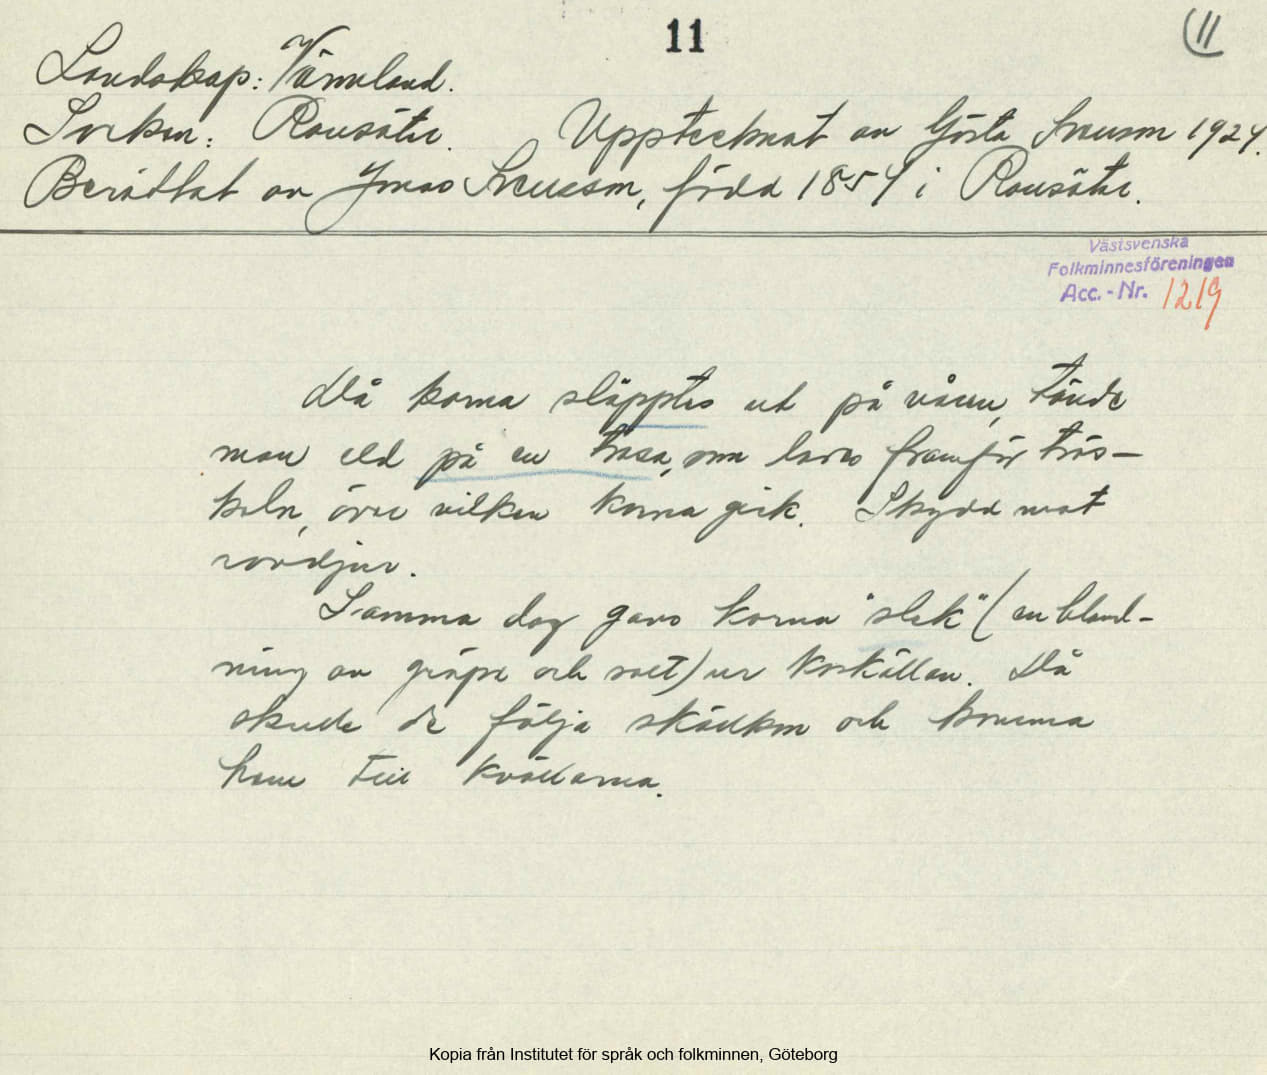 11
(11
Landskap: Värmland.
Socken: Ransäter. Upptecknat av Gösta Svensson 1924.
Berättat av Jonas Svensson, född 1854 i Ransäter.
Västsvenska
Folkminnesföreningen
Acc.-Nr. 1219
Då korna släpptes ut på våren, tände
man eld på en trasa, som lades framför trös-
keln, över vilken korna gick. Skydd mot
rovdjur.
Samma dag gavs korna "slek" (en bland-
ning av gröpe och salt) ur koskällan. Då
skulle de följa skällkon och komma
hem till kvällarna.
Kopia från Institutet för språk och folkminnen, Göteborg